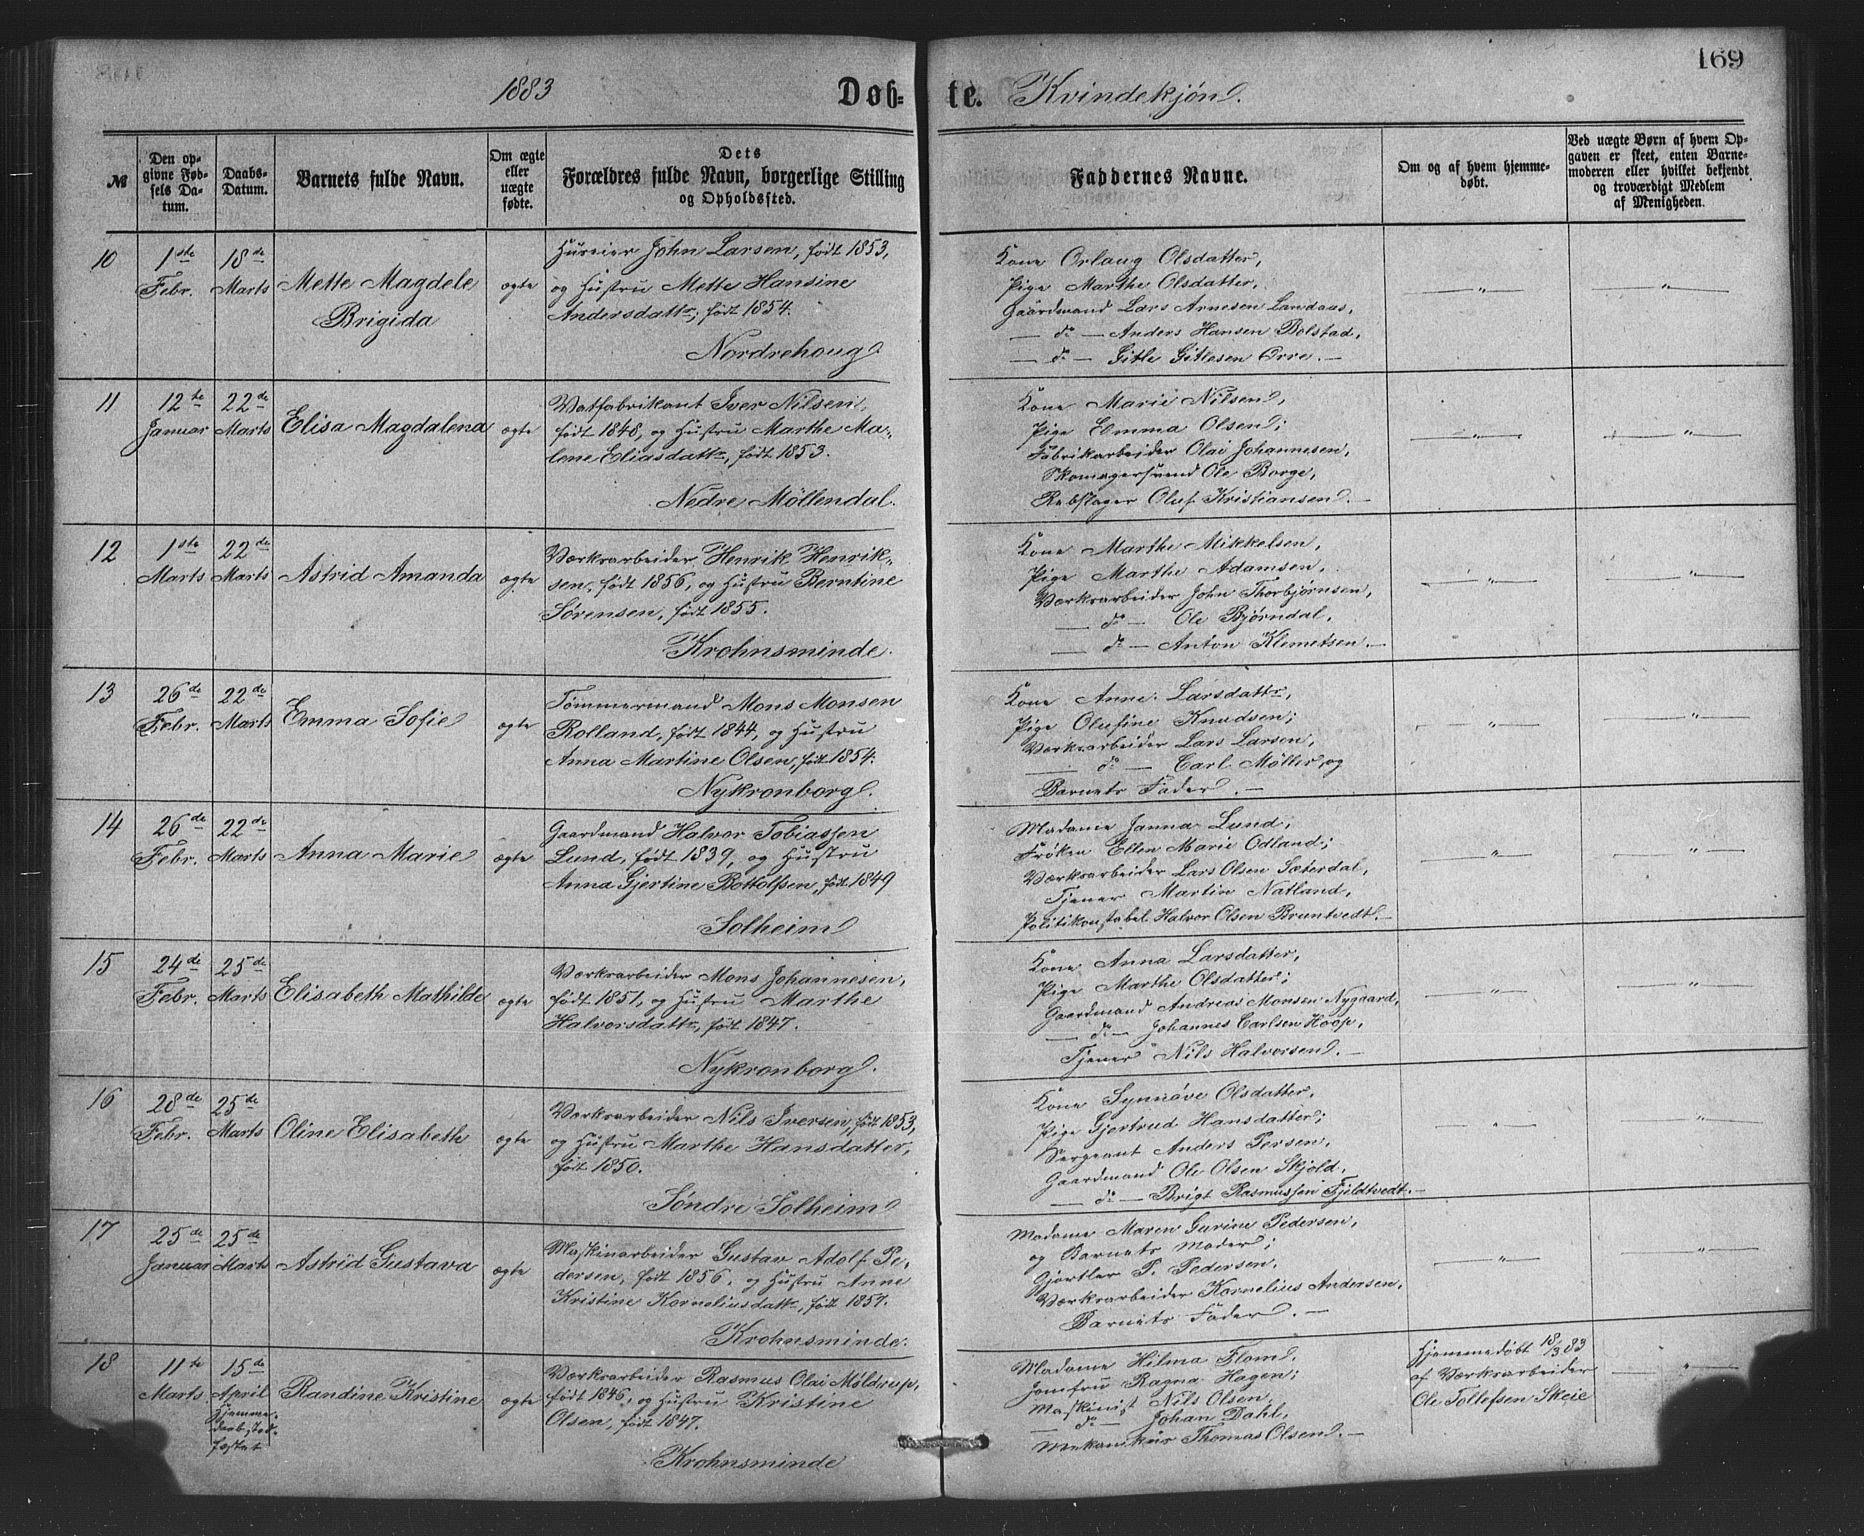 169
1883 Døb- te. Kvindekjøn.
№
Den opgivne Fødsels Datum.
Daabs-Datum.
Barnets fulde Navn.
Om ægte eller uægte fødte.
Dets Forældres fulde Navn, borgerlige Stilling og Opholdssted.
Faddernes Navne.
Om og af hvem hjemmedøbt.
Ved uægte Børn af hvem Opgaven er skeet, enten Barnemoderen eller hvilket bekjendt og troværdigt Medlem af Menigheden.
10
1ste Febr.
18de Marts
Mette Magdele
Brigida
ægte
Huseier John Larsen, født 1853,
og Hustru Mette Hansine
Andersdattr, født 1854.
Nordrehoug.
Kone Orlaug Olsdatter,
Pige Marthe Olsdatter,
Gaardmand Lars Arnesen Landaas,
— do — Anders Hansen Bolstad,
— do — Gitle Gitlesen Ørre. —
— " —
— " —
11
12te Januar
22de Marts
Elisa Magdalena
ægte
Vatfabrikant Iver Nilsen,
født 1848, og Hustru Marthe Ma-
lene Eliasdattr, født 1853.
Nedre Møllendal.
Kone Marie Nilsen,
Pige Emma Olsen;
Fabrikarbeider Olai Johannesen,
Skomagersvend Ole Borge,
Rebslager Oluf Kristiansen. —
— " —
— " —
12
1ste Marts
22de Marts
Astrid Amanda
ægte
Værksarbeider Henrik Henrik-
sen, født 1856, og Hustru Berntine
Sørensen, født 1855.
Krohnsminde.
Kone Marthe Mikkelsen,
Pige Marthe Adamsen,
Værksarbeider John Thorbjørnsen,
— do — Ole Bjørndal,
— do — Anton Klemetsen. —
— " —
— " —
13
26de Febr.
22de Marts
Emma Sofie
ægte
Tømmermand Mons Monsen
Rolland, født 1844, og Hustru
Anna Martine Olsen, født 1854.
Nykronborg.
Kone Anne Larsdattr,
Pige Olufine Knudsen;
Værksarbeider Lars Larsen,
— do — Carl Møller, og
Barnets Fader. —
— " —
— " —
14
26de Febr.
22de Marts
Anna Marie
ægte
Gaardmand Halvor Tobiassen
Lund, født 1839, og Hustru
Anna Gjertine Bottolfsen, født 1849
Solheim
Madame Janna Lund,
Frøken Ellen Marie Odland;
Værksarbeider Lars Olsen Sæterdal,
Tjener Martin Natland,
Politikonstabel Halvor Olsen Bruntvedt. —
— " —
— " —
15
24de Febr.
25de Marts
Elisabeth Mathilde
ægte
Værksarbeider Mons Johannesen,
født 1851, og Hustru Marthe
Halvorsdattr, født 1847.
Nykronborg.
Kone Anna Larsdatter,
Pige Marthe Olsdatter;
Gaardmand Andreas Monsen Nygaard,
— do — Johannes Carlsen Hoop,
Tjener Nils Halvorsen. —
— " —
— " —
16
28de Febr.
25de Marts
Oline Elisabeth
ægte
Værksarbeider Nils Iversen, født 1853,
og Hustru Marthe Hansdatter,
født 1850.
Søndre Solheim
Kone Synnøve Olsdatter,
Pige Gjertrud Hansdatter;
Sergeant Anders Persen,
Gaardmand Ole Olsen Skjold,
— do — Brigt Rasmussen Fjeldtvedt. —
— " —
"
17
25de Januar
25de Marts
Astrid Gustava
ægte
Maskinarbeider Gustav Adolf Pe-
dersen, født 1856, og Hustru Anne
Kristine Korneliusdattr, født 1857.
Krohnsminde.
Madame Maren Gurine Pedersen,
og Barnets Moder;
Gjørtler P. Pedersen,
Værksarbeider Kornelius Andersen,
Barnets Fader. —
— " —
— " —
18
11te Marts
15de April
Hjemme-
daabstad-
fæstet
Randine Kristine
ægte
Værksarbeider Rasmus Olai Møldrup,
født 1846, og Hustru Kristine
Olsen, født 1847.
Krohnsminde
Madame Hilma Flom,
Jomfru Ragna Hagen;
Maskinist Nils Olsen,
— do — Johan Dahl,
Mekanikus Thomas Olsen. —
Hjemmedøbt 18/3 83
af Værksarbeider
Ole Tollefsen Skeie
— " —